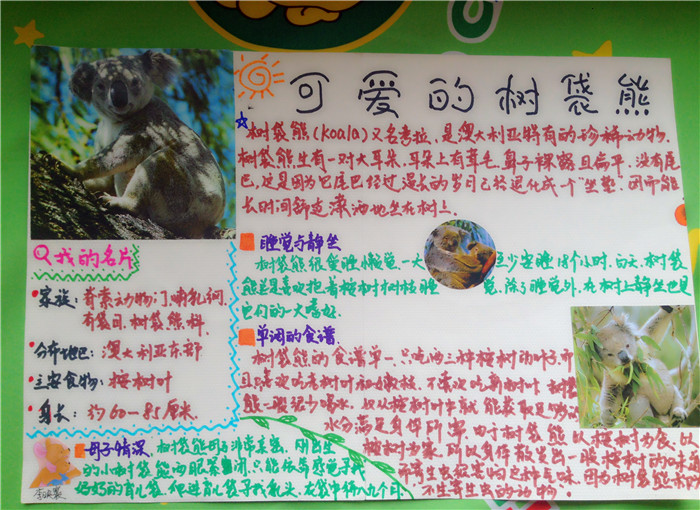 可爱的树袋熊
树袋熊(koala)又名考拉,是澳大利亚特有的珍稀动物.
树袋熊生有一对大耳朵,耳朵上有茸毛,鼻子裸露且扁平,没有尾
巴,这是因为它尾巴经过漫长的岁月已经退化成一个"坐垫",因而能
长时间舒适潇洒地坐在树上.
我的名片
家族:脊索动物门.哺乳纲.
有袋目.树袋熊科.
分布地区:澳大利亚东部
主要食物:桉树叶
身长:约60—85厘米.
睡觉与静坐
树袋熊很爱睡懒觉,一天至少要睡18个小时.白天,树袋
熊总是喜欢抱着桉树树枝睡觉,除了睡觉外,在树上静坐也是
它们的一大嗜好.
单调的食谱
树袋熊的食谱单一,只吃两三种桉树的叶子,而
且喜欢吃老树叶和嫩枝,不喜欢吃新树叶
熊一般很少喝水,
水分满足身体所需.由于树袋熊以桉树为食,以
桉树为家,所以身体散发出一股桉树的味道
不生寄生虫的动物.
母子情深.树袋熊母子非常亲密,刚出生
的小树袋熊两眼紧闭,只能依靠感觉寻找
妈妈的育儿袋,爬进育儿袋寻找乳头,在袋中待八九个月.